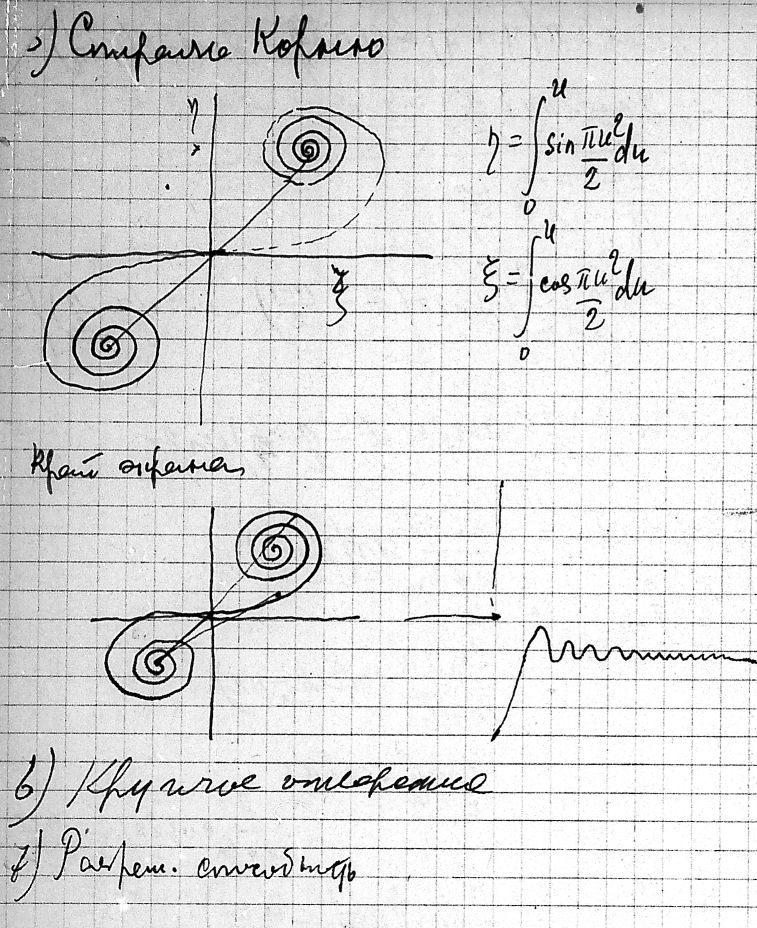 5) Спираль Корню
η
η = ∫₀ᵘ sin πu²/2 du
ξ
ξ = ∫₀ᵘ cos πu²/2 du
Край экрана
6) Круглое отверстие
7) Разреш. способность